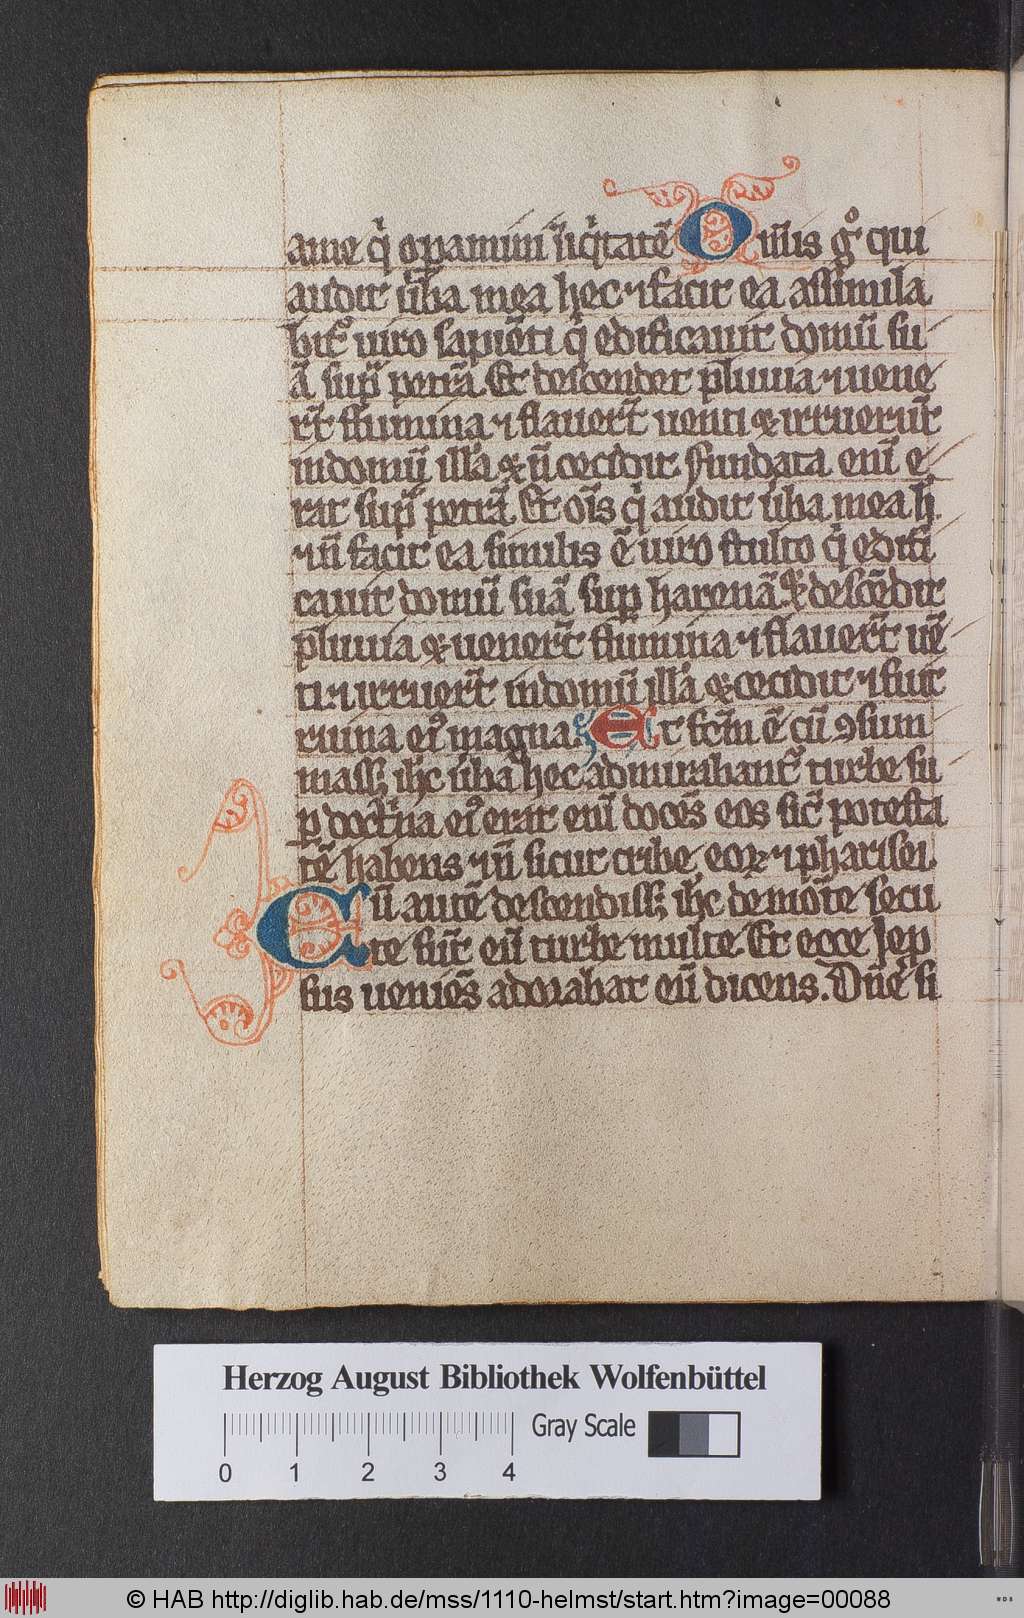 a me q̇ operamini iiqͥtatē Oīn̄is gͦ qui
audit ūba mea hec ⁊ facit ea assimila
bitᷣ uiro sapiēti q̇ edificauit domū su
ā sup̄ petrā. Et descendet pluuia ⁊ uene
rt̄ flumina ⁊ flauert̄ uenti & irruerūt
in domū illā & n̄ cecidit. fundata enī e
rat sup̄ petrā. Et oīs q̇ audit ūba mea h̄
⁊ n̄ facit ea similis ē uiro stulto q̇ edifi
cauit domū suā sup harenā. & descēdit
pluuia & uenert̄ flumina ⁊ flauert̄ uē
ti. ⁊ irruert̄ in domū illā & cecidit ⁊ fuit
ruina eiꝰ magna. Et fctm̄ ē cū ꝯsum
mass; ih̄c ūba hec admirabantᷣ turbe su
p doctͥna eiꝰ erat enī docēs eos sic̄ potesta
tē habens ⁊ n̄ sicut scribe eoꝝ ⁊ pharisei.
Cū autē descendiss; ih̄c de mōte secu
te sūt eū turbe multe. Et ecce lep
sus ueniēs adorabat eū dicens. Dn̄e si
Herzog August Bibliothek Wolfenbüttel
0 1 2 3 4 Gray Scale
© HAB http://diglib.hab.de/mss/1110-helmst/start.htm?image=00088